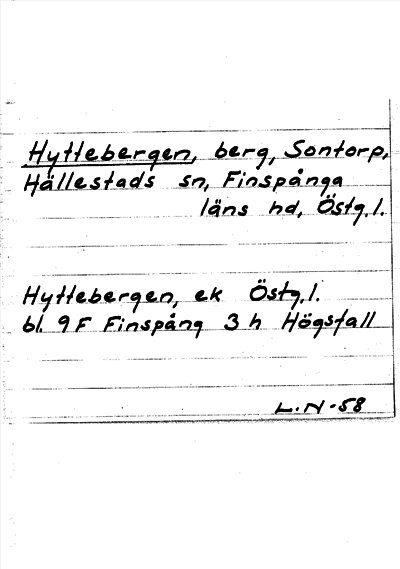 Hyttebergen, berg, Sontorp,
Hällestads sn, Finspånga
läns hd, Östg. l.
Hyttebergen, ek Östg. l.
bl. 9 F Finspång 3 h Högsfall
L. N - 58